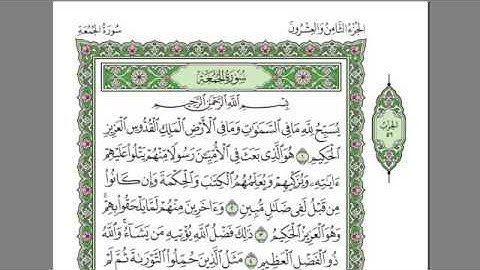 الجزء الثامن والعشرون
سورة الجمعة
سُورَةُ الجُمُعَةِ
بِسْمِ اللَّهِ الرَّحْمَٰنِ الرَّحِيمِ
يُسَبِّحُ لِلَّهِ مَا فِي السَّمَٰوَٰتِ وَمَا فِي الْأَرْضِ الْمَلِكِ الْقُدُّوسِ الْعَزِيزِ
الْحَكِيمِ ١ هُوَ الَّذِي بَعَثَ فِي الْأُمِّيِّۦنَ رَسُولًا مِّنْهُمْ يَتْلُوا عَلَيْهِمْ
ءَايَٰتِهِۦ وَيُزَكِّيهِمْ وَيُعَلِّمُهُمُ الْكِتَٰبَ وَالْحِكْمَةَ وَإِن كَانُوا
مِن قَبْلُ لَفِي ضَلَٰلٍ مُّبِينٍ ٢ وَءَاخَرِينَ مِنْهُمْ لَمَّا يَلْحَقُوا بِهِمْ
وَهُوَ الْعَزِيزُ الْحَكِيمُ ٣ ذَٰلِكَ فَضْلُ اللَّهِ يُؤْتِيهِ مَن يَشَاءُ وَاللَّهُ
ذُو الْفَضْلِ الْعَظِيمِ ٤ مَثَلُ الَّذِينَ حُمِّلُوا التَّوْرَىٰةَ ثُمَّ لَمْ
الحزب
٥٦